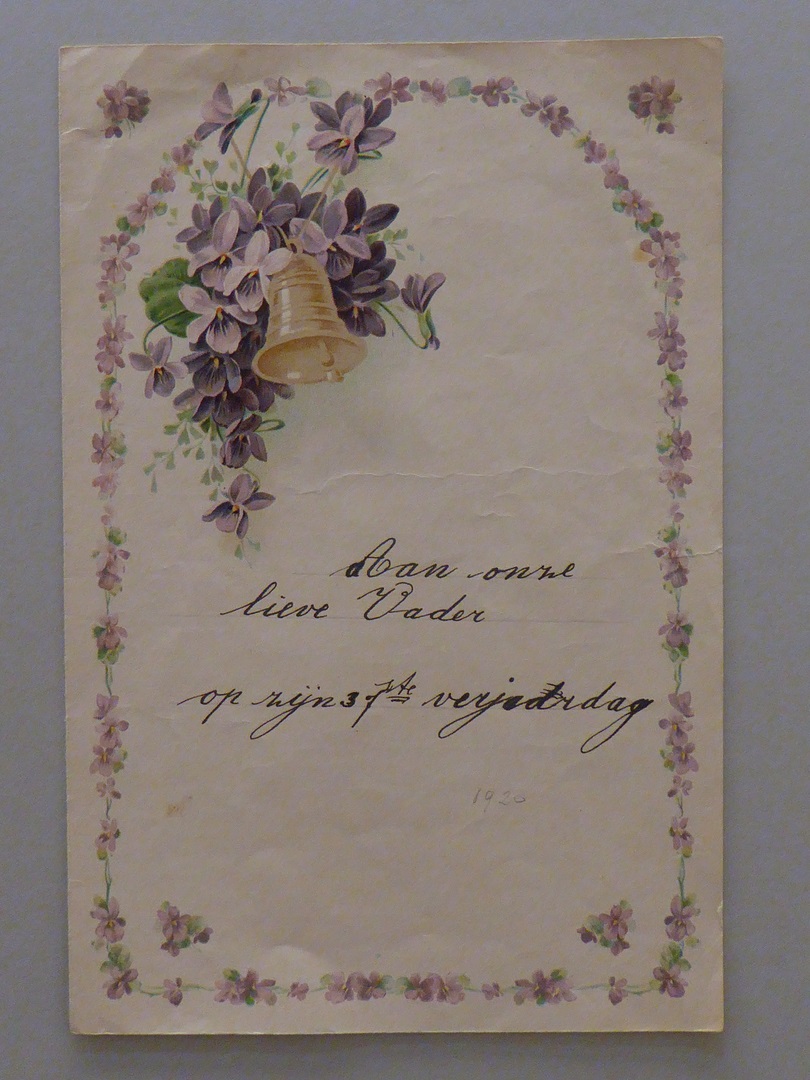 Aan onze
lieve Vader
op zijn 37ste verjaardag
1920